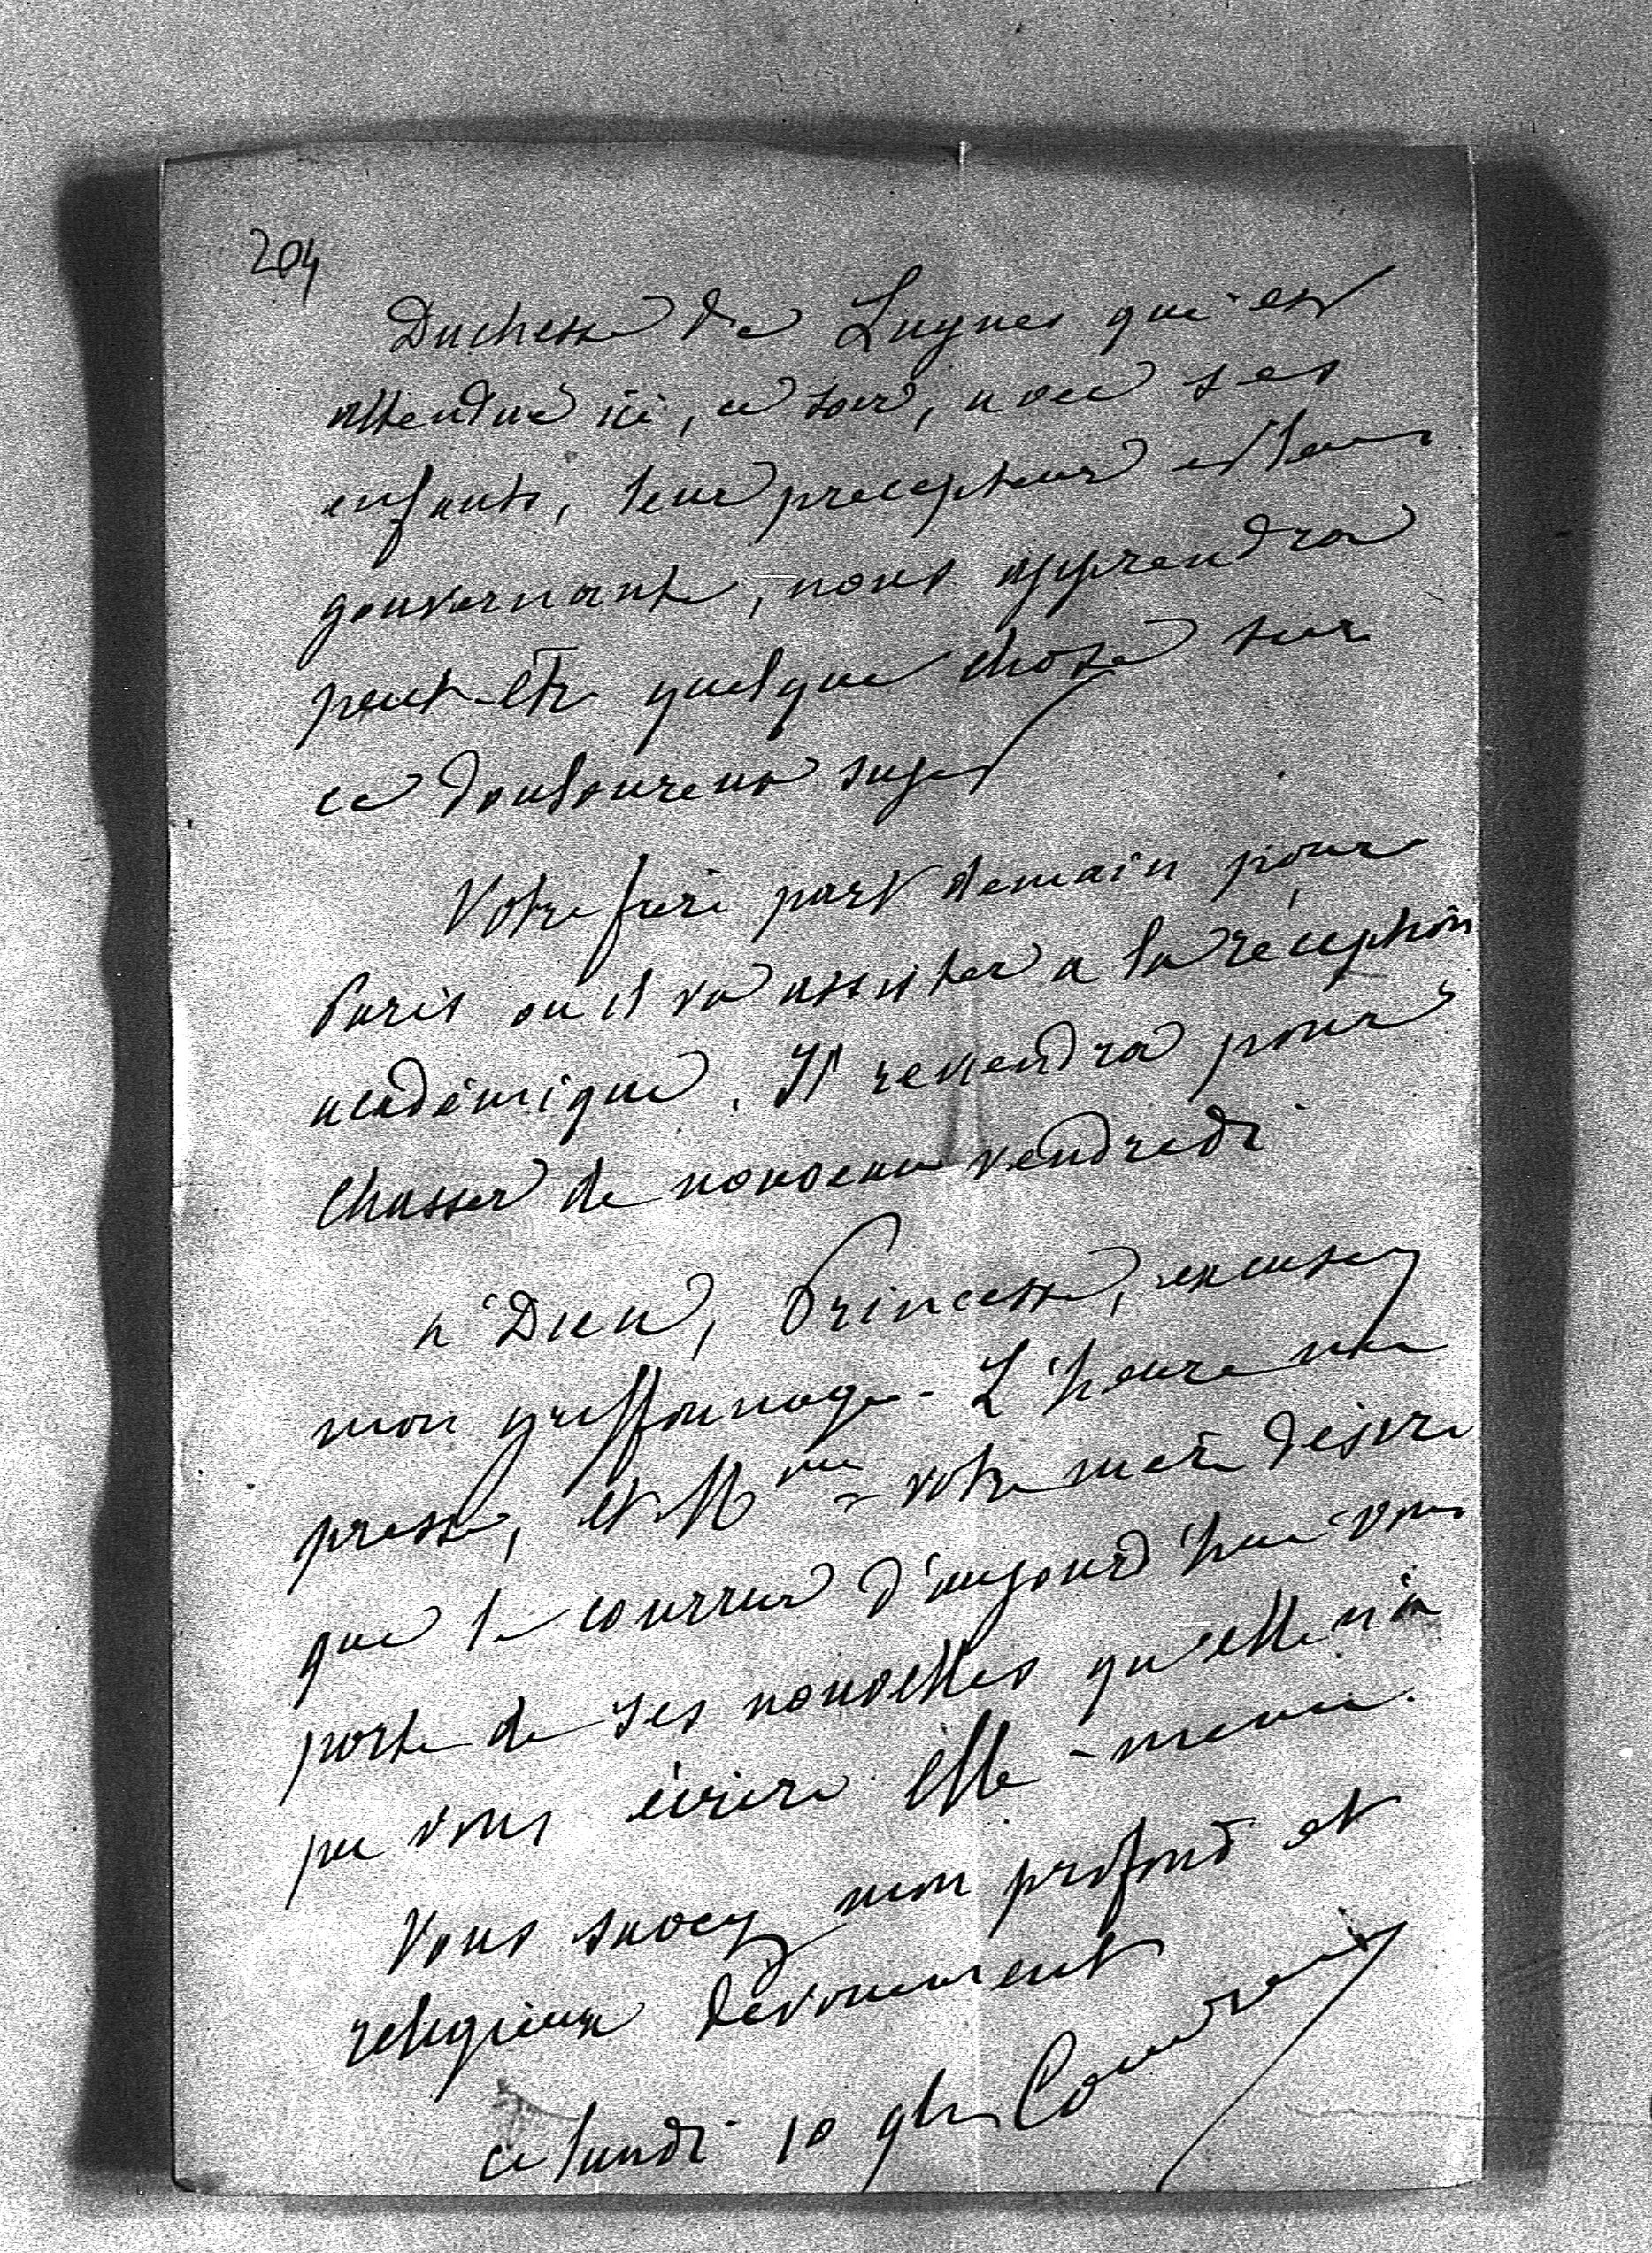 204
Duchesse de Luynes qui est
attendue ici, ce soir, avec ses
enfants, leur precepteur et leur
gouvernante, nous apprendra
peut-être quelque chose sur
ce douloureux sujet
Votre frère part demain pour
Paris ou il va assister a la réception
académique. Il reviendra pour
chasser de nouveau vendredi
a Dieu, Princesse, excusez
mon griffonnage. L'heure me
presse, et Mme votre mère désire
que le courrier d'aujourd'hui vous
porte de ses nouvelles qu'elle n'a
pu vous écrire elle-meme.
Vous savez mon profond et
religieux dévouement
ce lundi 10 9bre